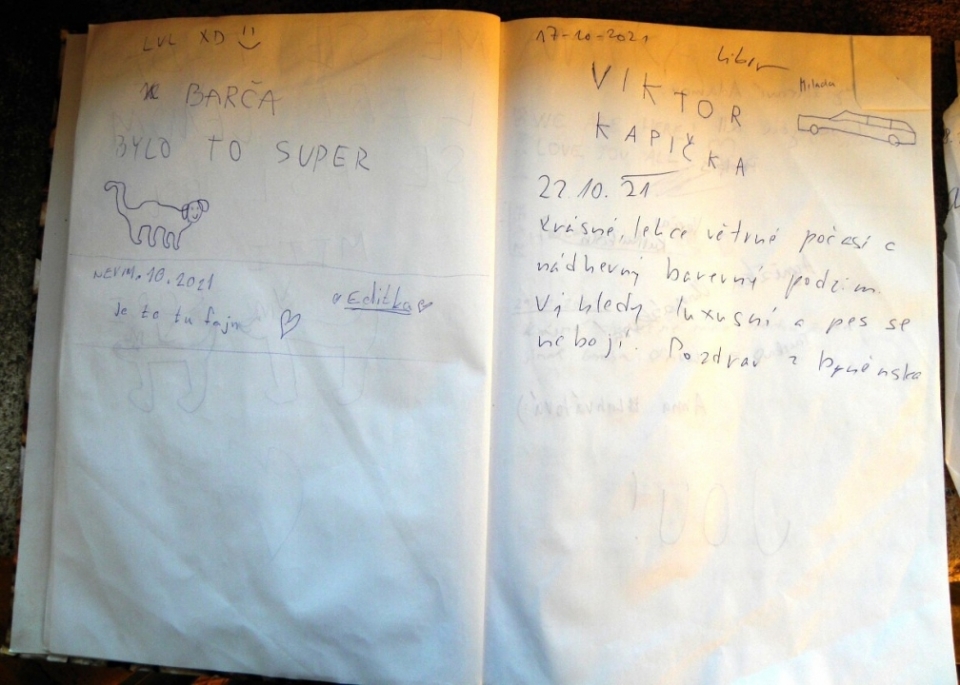 LVL XD
BARČA
BYLO TO SUPER
.10.2021
Je to tu fajn
Editka
17-10-2021
Libor
Milada
VIKTOR
KAPIČKA
22.10.21
Krásné, lehce větrné počasí a
nádherný barevný podzim.
Výhledy luxusní a pes se
nebojí. Pozdrav z